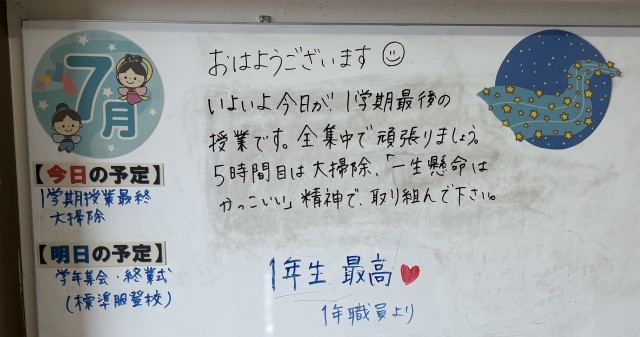 7月
おはようございます
いよいよ今日が、1学期最後の
授業です。全集中で頑張りましょう。
5時間目は大掃除、「一生懸命は
かっこいい」精神で、取り組んで下さい。
1年生 最高
1年職員より
【今日の予定】
1学期授業最終
大掃除
【明日の予定】
学年集会・終業式
(標準服登校)